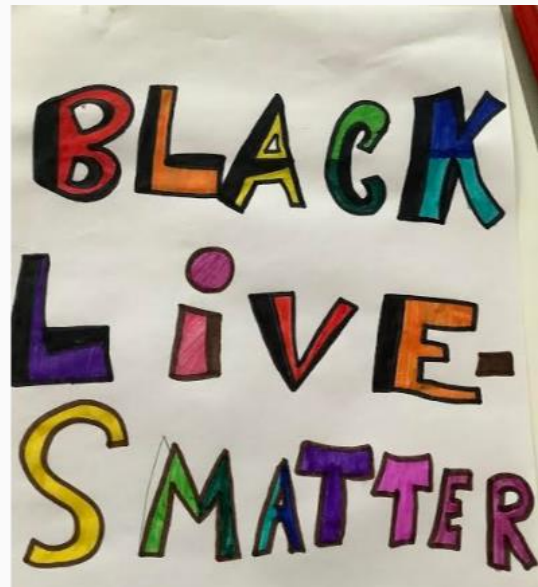 BLACK
LiVE-
S MATTER